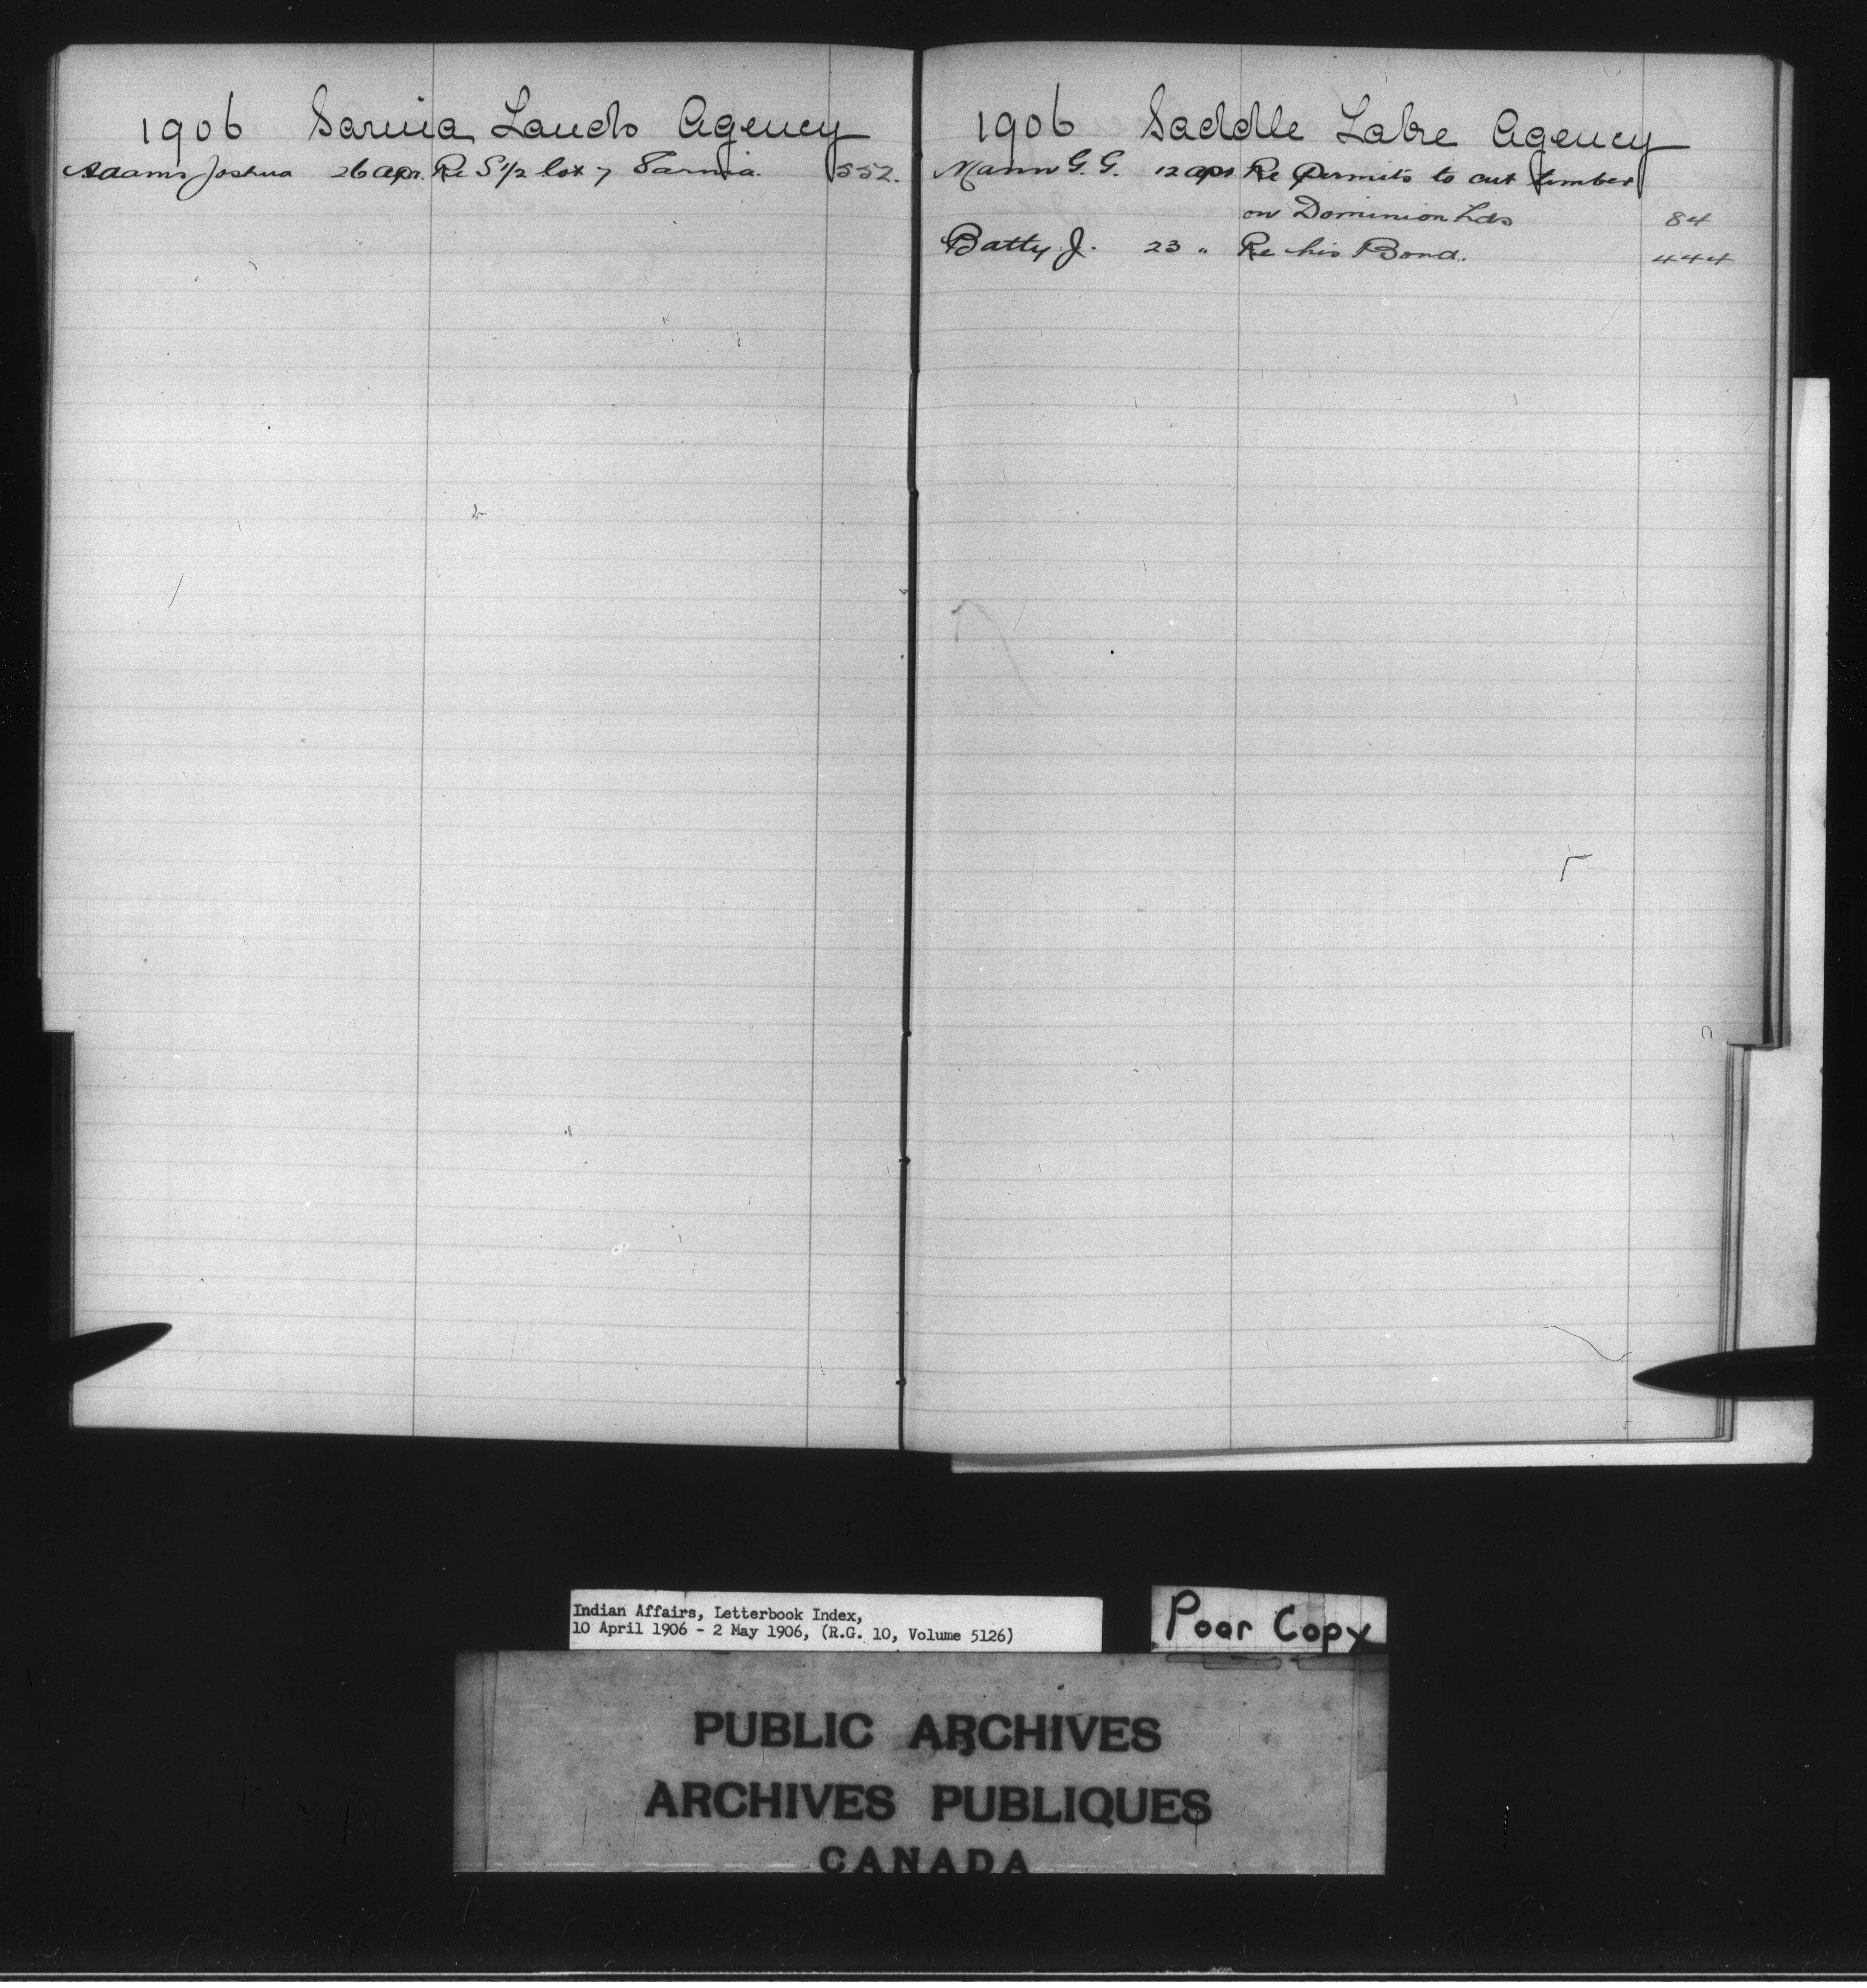 1906 Sarnia Lands Agency
Adams Joshua 26 Apr. Re S 1/2 lot 7 Sarnia. 552.
1906 Saddle Lake Agency
Mann G. G. 12 Apr. Re Permits to cut timber
on Dominion Lds 84
Batty J. 23 " Re his Bond. 444
Indian Affairs, Letterbook Index,
10 April 1906 - 2 May 1906, (R.G. 10, Volume 5126)
Poor Copy
PUBLIC ARCHIVES
ARCHIVES PUBLIQUES
CANADA